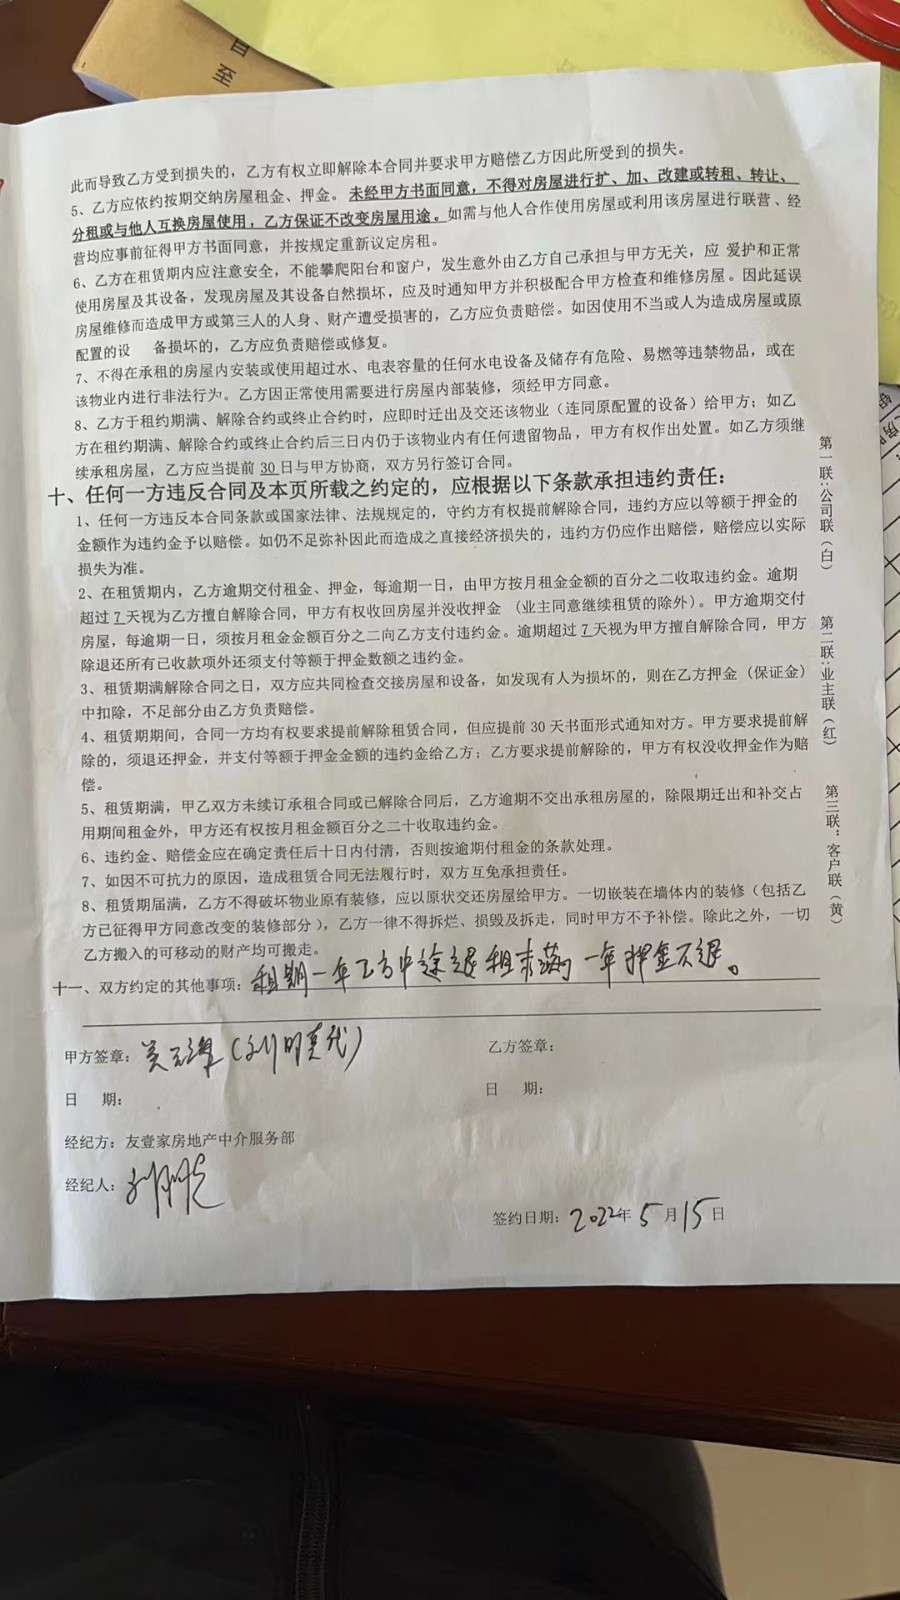 此而导致乙方受到损失的，乙方有权立即解除本合同并要求甲方赔偿乙方因此所受到的损失。
5、乙方应依约按期交纳房屋租金、押金。未经甲方书面同意，不得对房屋进行扩、加、改建或转租、转让、
分租或与他人互换房屋使用，乙方保证不改变房屋用途。如需与他人合作使用房屋或利用该房屋进行联营、经
营均应事前征得甲方书面同意，并按规定重新议定房租。
6、乙方在租赁期内应注意安全，不能攀爬阳台和窗户，发生意外由乙方自己承担与甲方无关，应 爱护和正常
使用房屋及其设备，发现房屋及其设备自然损坏，应及时通知甲方并积极配合甲方检查和维修房屋。因此延误
房屋维修而造成甲方或第三人的人身、财产遭受损害的，乙方应负责赔偿。如因使用不当或人为造成房屋或原
配置的设 备损坏的，乙方应负责赔偿或修复。
7、不得在承租的房屋内安装或使用超过水、电表容量的任何水电设备及储存有危险、易燃等违禁物品，或在
该物业内进行非法行为。乙方因正常使用需要进行房屋内部装修，须经甲方同意。
8、乙方于租约期满、解除合约或终止合约时，应即时迁出及交还该物业（连同原配置的设备）给甲方；如乙
方在租约期满、解除合约或终止合约后三日内仍于该物业内有任何遗留物品，甲方有权作出处置。如乙方须继
续承租房屋，乙方应当提前 30 日与甲方协商，双方另行签订合同。
十、任何一方违反合同及本页所载之约定的，应根据以下条款承担违约责任：
1、任何一方违反本合同条款或国家法律、法规规定的，守约方有权提前解除合同，违约方应以等额于押金的
金额作为违约金予以赔偿。如仍不足弥补因此而造成之直接经济损失的，违约方仍应作出赔偿，赔偿应以实际
损失为准。
2、在租赁期内，乙方逾期交付租金、押金，每逾期一日，由甲方按月租金金额的百分之二收取违约金。逾期
超过 7 天视为乙方擅自解除合同，甲方有权收回房屋并没收押金 （业主同意继续租赁的除外）。甲方逾期交付
房屋，每逾期一日，须按月租金金额百分之二向乙方支付违约金。逾期超过 7 天视为甲方擅自解除合同，甲方
除退还所有已收款项外还须支付等额于押金数额之违约金。
3、租赁期满解除合同之日，双方应共同检查交接房屋和设备，如发现有人为损坏的，则在乙方押金（保证金）
中扣除，不足部分由乙方负责赔偿。
4、租赁期期间，合同一方均有权要求提前解除租赁合同，但应提前 30 天书面形式通知对方。甲方要求提前解
除的，须退还押金，并支付等额于押金金额的违约金给乙方；乙方要求提前解除的，甲方有权没收押金作为赔
偿。
5、租赁期满，甲乙双方未续订承租合同或已解除合同后，乙方逾期不交出承租房屋的，除限期迁出和补交占
用期间租金外，甲方还有权按月租金额百分之二十收取违约金。
6、违约金、赔偿金应在确定责任后十日内付清，否则按逾期付租金的条款处理。
7、如因不可抗力的原因，造成租赁合同无法履行时，双方互免承担责任。
8、租赁期届满，乙方不得破坏物业原有装修，应以原状交还房屋给甲方。一切嵌装在墙体内的装修（包括乙
方已征得甲方同意改变的装修部分），乙方一律不得拆烂、损毁及拆走，同时甲方不予补偿。除此之外，一切
乙方搬入的可移动的财产均可搬走。
十一、双方约定的其他事项：租期一年乙方中途退租未满一年押金不退。
甲方签章：
乙方签章：
日 期：
日 期：
经纪方：友壹家房地产中介服务部
经纪人：
签约日期：2022年 5 月 15 日
第一联：公司联（白）
第二联：业主联（红）
第三联：客户联（黄）